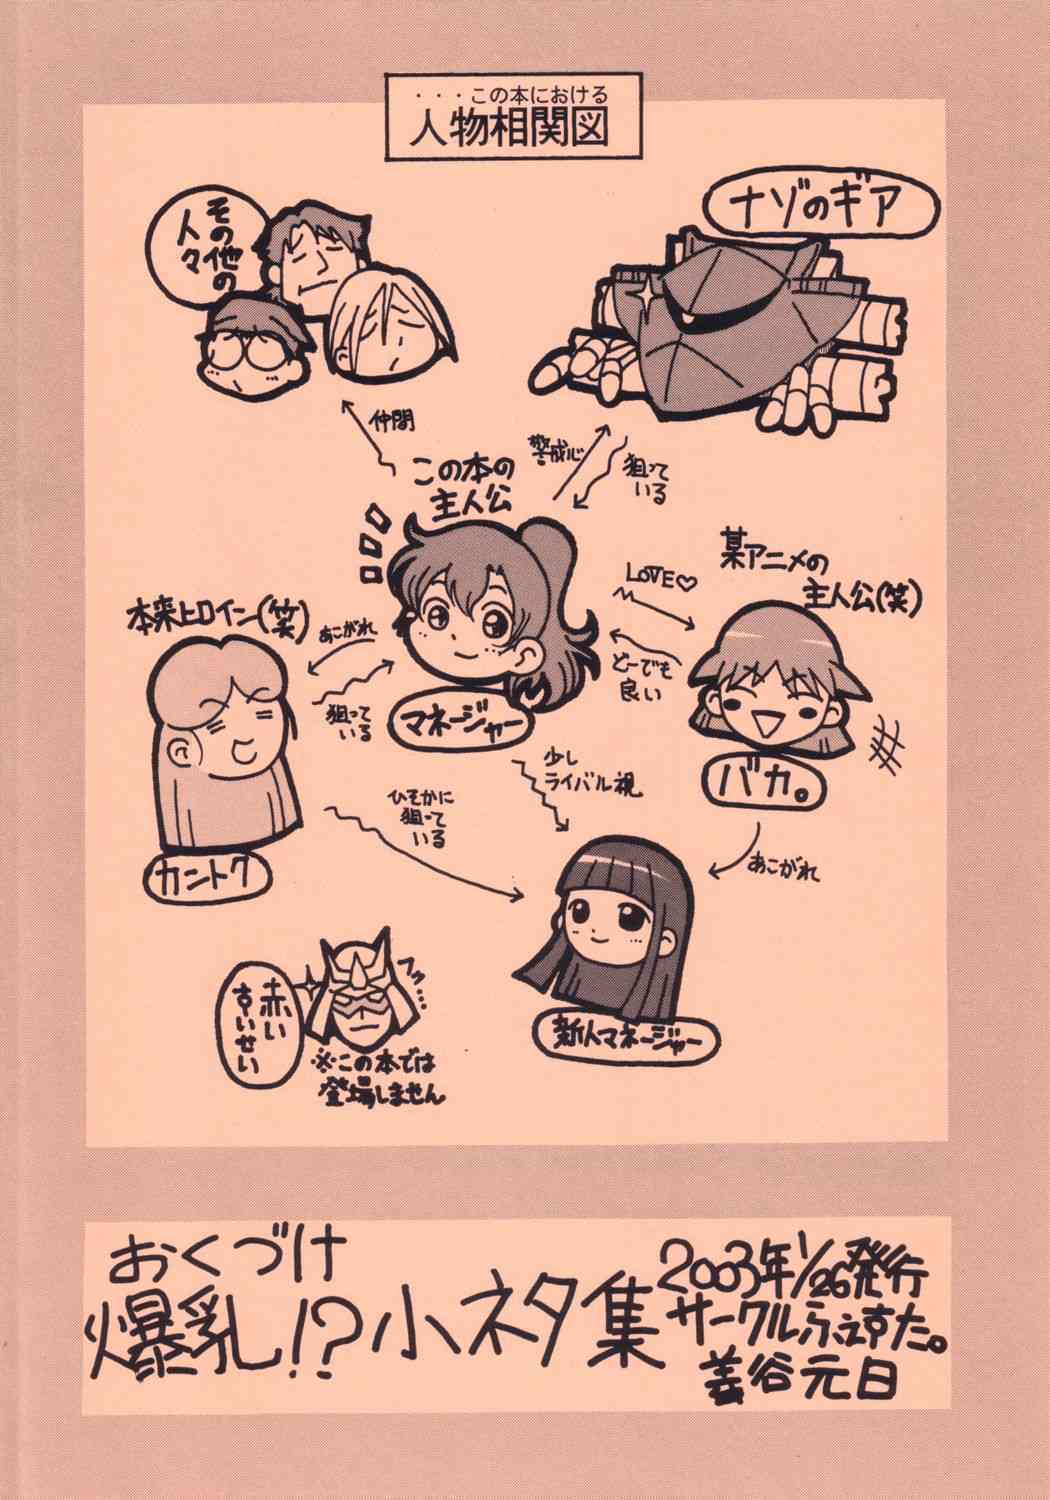 ・・・この本における
人物相関図
その他の
人々
ナゾのギア
仲間
警戒心
狙って
いる
この本の
主人公
某アニメの
主人公(笑)
LOVE♡
どーでも
良い
本来ヒロイン(笑)
あこがれ
狙って
いる
マネージャー
バカ。
少し
ライバル視
ひそかに
狙って
いる
あこがれ
カントク
新人マネージャー
赤い
すいせい
フッ…
※この本では
登場しません
おくづけ
爆乳!?小ネタ集
2003年1/26発行
サークルふぇすた。
姜谷元日